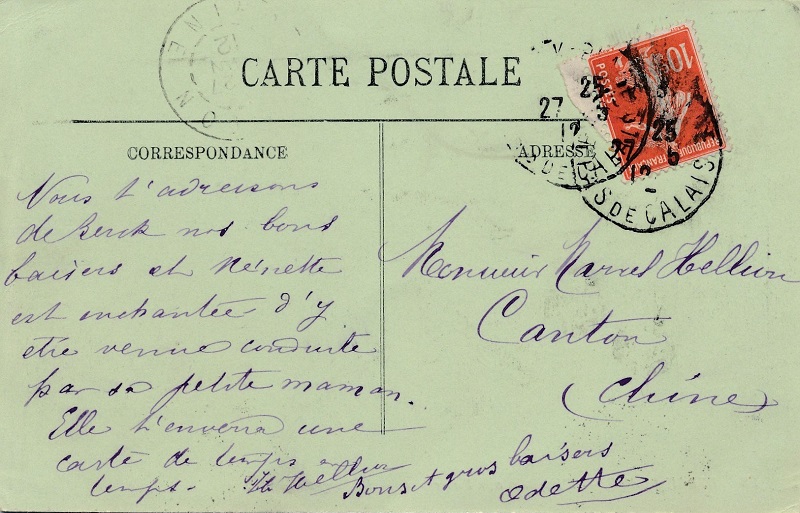 CARTE POSTALE
CORRESPONDANCE
ADRESSE
Nous t'adressons
de Berck nos bons
baisers et Nénette
est enchantée d'y
être venue conduite
par sa petite maman.
Elle t'enverra une
carte de temps à
temps. Hellion
Bons et gros baisers
Odette
Monsieur Marcel Hellion
Canton
(Chine)
10
POSTES
REPUBLIQUE FRANÇAISE
27
12
25
S DE CALAIS